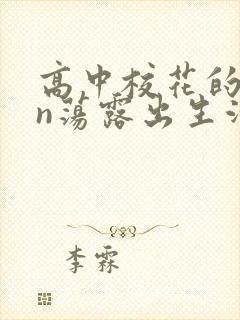 高中校花的
n蕩露出生
李霖